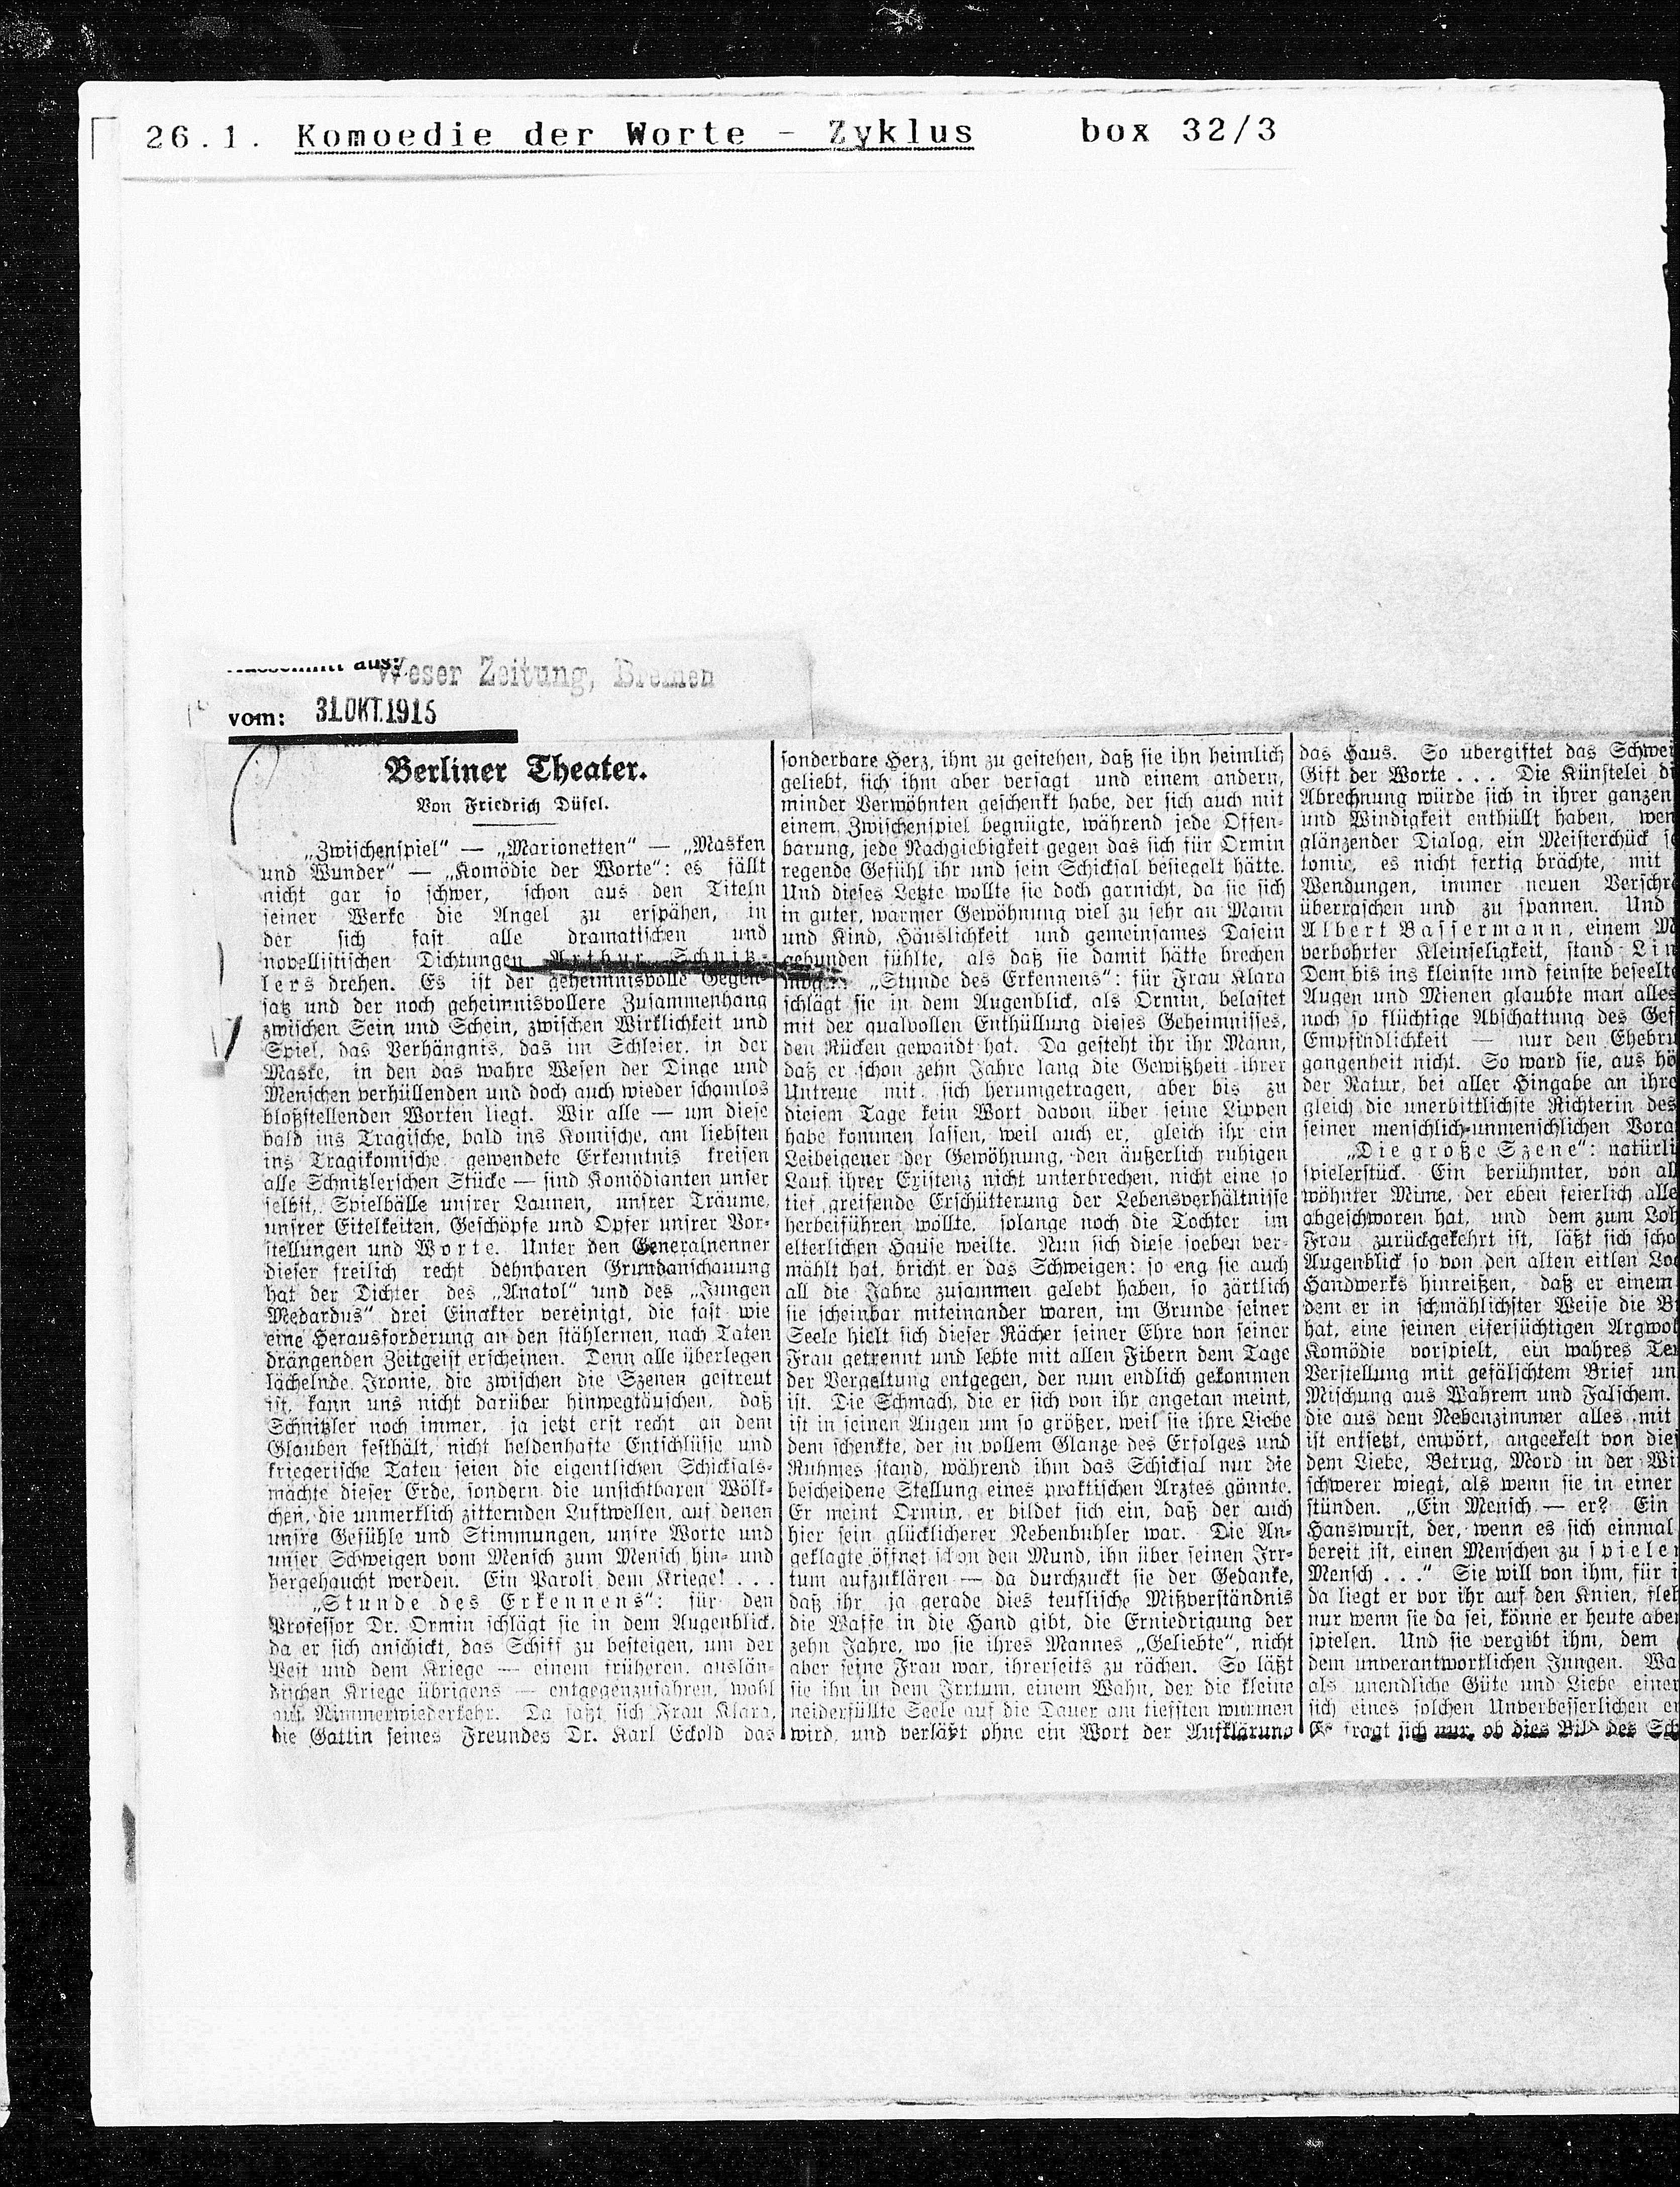 26.1. Komoedie der Worte - Zyklus box 32/3
Ausschnitt aus: Weser Zeitung, Bremen
vom: 31.OKT.1915
Berliner Theater.
Von Friedrich Düsel.
„Zwischenspiel“ — „Marionetten“ — „Masken
und Wunder“ — „Komödie der Worte“: es fällt
nicht gar so schwer, schon aus den Titeln
seiner Werke die Angel zu erspähen, in
der sich fast alle dramatischen und
novellistischen Dichtungen Arthur Schnitz-
lers drehen. Es ist der geheimnisvolle Gegen-
satz und der noch geheimnisvollere Zusammenhang
zwischen Sein und Schein, zwischen Wirklichkeit und
Spiel, das Verhängnis, das im Schleier, in der
Maske, in den das wahre Wesen der Dinge und
Menschen verhüllenden und doch auch wieder schamlos
bloßstellenden Worten liegt. Wir alle — um diese
bald ins Tragische, bald ins Komische, am liebsten
ins Tragikomische gewendete Erkenntnis kreisen
alle Schnitzlerschen Stücke — sind Komödianten unser
selbst, Spielbälle unsrer Launen, unsrer Träume,
unsrer Eitelkeiten, Geschöpfe und Opfer unsrer Vor-
stellungen und Worte. Unter den Generalnenner
dieser freilich recht dehnbaren Grundanschauung
hat der Dichter des „Anatol“ und des „Jungen
Medardus“ drei Einakter vereinigt, die fast wie
eine Herausforderung an den stählernen, nach Taten
drängenden Zeitgeist erscheinen. Denn alle überlegen
lächelnde Ironie, die zwischen die Szenen gestreut
ist, kann uns nicht darüber hinwegtäuschen, daß
Schnitzler noch immer, ja jetzt erst recht an dem
Glauben festhält, nicht heldenhafte Entschlüsse und
kriegerische Taten seien die eigentlichen Schicksals-
mächte dieser Erde, sondern die unsichtbaren Wölk-
chen, die unmerklich zitternden Luftwellen, auf denen
unsre Gefühle und Stimmungen, unsre Worte und
unser Schweigen vom Mensch zum Mensch hin- und
hergehaucht werden. Ein Paroli dem Kriege! . . .
„Stunde des Erkennens“: für den
Professor Dr. Ormin schlägt sie in dem Augenblick,
da er sich anschickt, das Schiff zu besteigen, um der
Pest und dem Kriege — einem früheren, auslän-
dischen Kriege übrigens — entgegenzufahren, wohl
auf Nimmerwiederkehr. Da faßt sich Frau Klara,
die Gattin seines Freundes Dr. Karl Eckold das
sonderbare Herz, ihm zu gestehen, daß sie ihn heimlich
geliebt, sich ihm aber versagt und einem andern,
minder Verwöhnten geschenkt habe, der sich auch mit
einem Zwischenspiel begnügte, während jede Offen-
barung, jede Nachgiebigkeit gegen das sich für Ormin
regende Gefühl ihr und sein Schicksal besiegelt hätte.
Und dieses Letzte wollte sie doch garnicht, da sie sich
in guter, warmer Gewöhnung viel zu sehr an Mann
und Kind, Häuslichkeit und gemeinsames Dasein
gebunden fühlte, als daß sie damit hätte brechen
mögen. „Stunde des Erkennens“: für Frau Klara
schlägt sie in dem Augenblick, als Ormin, belastet
mit der qualvollen Enthüllung dieses Geheimnisses,
den Rücken gewandt hat. Da gesteht ihr ihr Mann,
daß er schon zehn Jahre lang die Gewißheit ihrer
Untreue mit sich herumgetragen, aber bis zu
diesem Tage kein Wort davon über seine Lippen
habe kommen lassen, weil auch er, gleich ihr ein
Leibeigener der Gewöhnung, den äußerlich ruhigen
Lauf ihrer Existenz nicht unterbrechen, nicht eine so
tief greifende Erschütterung der Lebensverhältnisse
herbeiführen wollte, solange noch die Tochter im
elterlichen Hause weilte. Nun sich diese soeben ver-
mählt hat, bricht er das Schweigen: so eng sie auch
all die Jahre zusammen gelebt haben, so zärtlich
sie scheinbar miteinander waren, im Grunde seiner
Seele hielt sich dieser Rächer seiner Ehre von seiner
Frau getrennt und lebte mit allen Fibern dem Tage
der Vergeltung entgegen, der nun endlich gekommen
ist. Die Schmach, die er sich von ihr angetan meint,
ist in seinen Augen um so größer, weil sie ihre Liebe
dem schenkte, der in vollem Glanze des Erfolges und
Ruhmes stand, während ihm das Schicksal nur die
bescheidene Stellung eines praktischen Arztes gönnte.
Er meint Ormin, er bildet sich ein, daß der auch
hier sein glücklicherer Nebenbuhler war. Die An-
geklagte öffnet schon den Mund, ihn über seinen Irr-
tum aufzuklären — da durchzuckt sie der Gedanke,
daß ihr ja gerade dies teuflische Mißverständnis
die Waffe in die Hand gibt, die Erniedrigung der
zehn Jahre, wo sie ihres Mannes „Geliebte“, nicht
aber seine Frau war, ihrerseits zu rächen. So läßt
sie ihn in dem Irrtum, einem Wahn, der die kleine
neiderfüllte Seele auf die Dauer am tiefsten wurmen
wird, und verläßt ohne ein Wort der Aufklärung
das Haus. So übergiftet das Schwei
Gift der Worte . . . Die Künstelei di
Abrechnung würde sich in ihrer ganzen
und Windigkeit enthüllt haben, wen
glänzender Dialog, ein Meisterstück se
tomie, es nicht fertig brächte, mit
Wendungen, immer neuen Verschr
überraschen und zu spannen. Und
Albert Bassermann, einem M
verbohrter Kleinseligkeit, stand Lin
Dem bis ins kleinste und feinste beseelte
Augen und Mienen glaubte man alles
noch so flüchtige Abschattung des Gef
Empfindlichkeit — nur den Ehebru
gangenheit nicht. So ward sie, aus hö
der Natur, bei aller Hingabe an ihre
gleich die unerbittlichste Richterin des
seiner menschlich-unmenschlichen Vora
„Die große Szene“: natürli
spielerstück. Ein berühmter, von al
wöhnter Mime, der eben feierlich alle
abgeschworen hat, und dem zum Loh
Frau zurückgekehrt ist, läßt sich scho
Augenblick so von den alten eitlen Loc
Handwerks hinreißen, daß er einem
dem er in schmählichster Weise die B
hat, eine seinen eifersüchtigen Argwoh
Komödie vorspielt, ein wahres Te
Verstellung mit gefälschtem Brief un
Mischung aus Wahrem und Falschem.
die aus dem Nebenzimmer alles mit
ist entsetzt, empört, angeekelt von die
dem Liebe, Betrug, Mord in der Wi
schwerer wiegt, als wenn sie in einer
stünden. „Ein Mensch — er? Ein
Hanswurst, der, wenn es sich einmal
bereit ist, einen Menschen zu spielen
Mensch . . .“ Sie will von ihm, für i
da liegt er vor ihr auf den Knien, fleh
nur wenn sie da sei, könne er heute aben
spielen. Und sie vergibt ihm, dem
dem unverantwortlichen Jungen. Wa
als unendliche Güte und Liebe einer
sich eines solchen Unverbesserlichen er
Es fragt sich nur, ob dies Bild des Sch